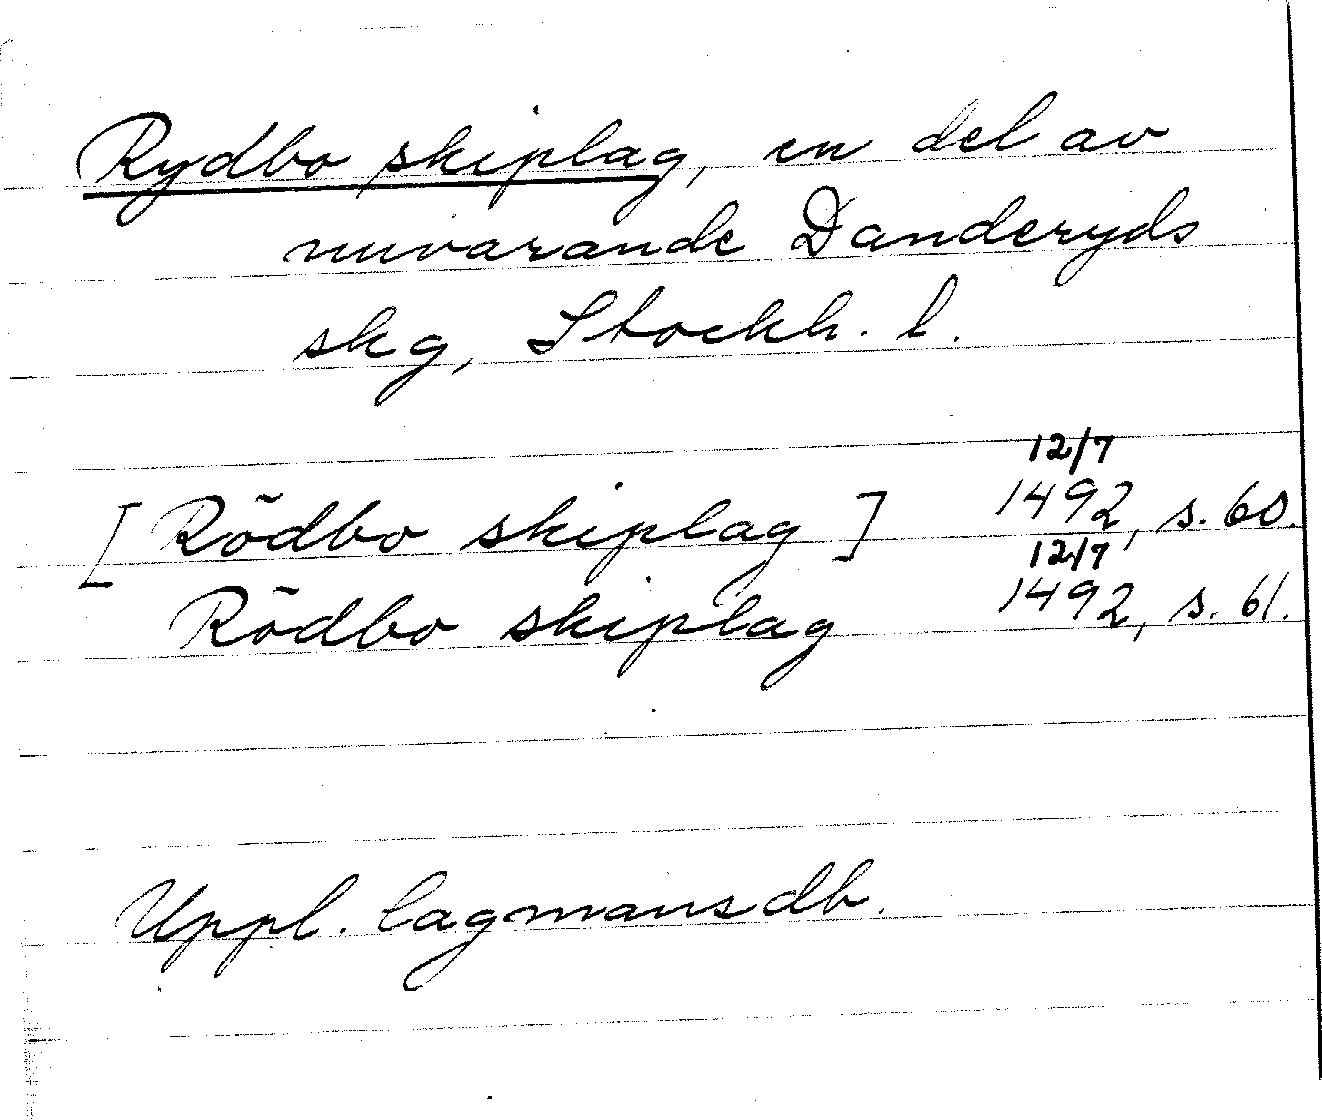 Rydbo skiplag, en del av
nuvarande Danderyds
skg, Stockh. l.
12/7
[Rödbo skiplag] 1492, s. 60.
12/7
Rödbo skiplag 1492, s. 61.
Uppl. lagmansdb.